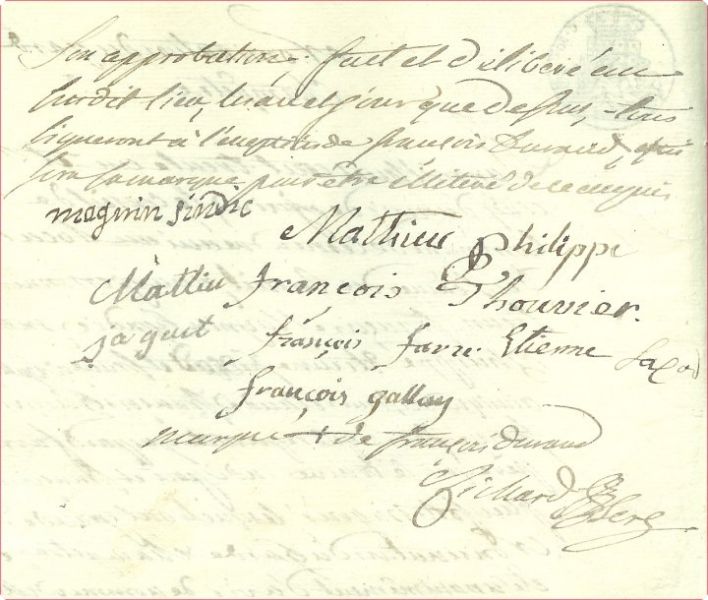 son approbation. fait et délibéré au
susdit lieu, lesan et jour que dessus, tous
signeront à l'exception de françois Durand, qui
fera samarque pour être illiteré de ce enquis
magnin sindic
Mathieu Philippe
Mattieu françois Thouvier.
jaquet françois farre Etienne
françois gallay
marque + de françois durand
Sillard